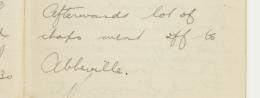 Afterwards lot of
chaps went off to
Abbeville.
30